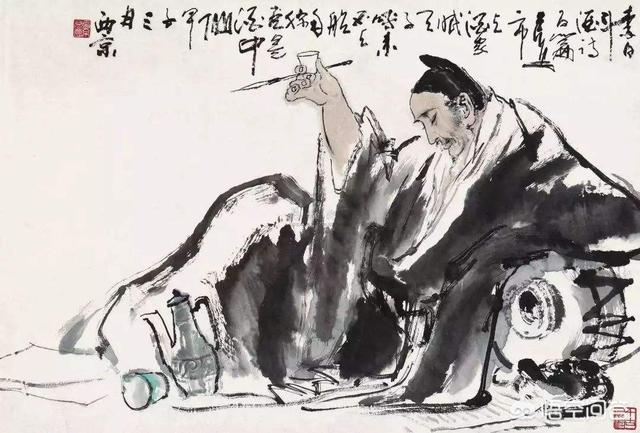 李白
斗酒诗
百篇
长安
市
上酒家
眠
天
子
呼来
不上
船
自称
臣是
酒中
仙
甲
子
三
月
西京
悟空问答